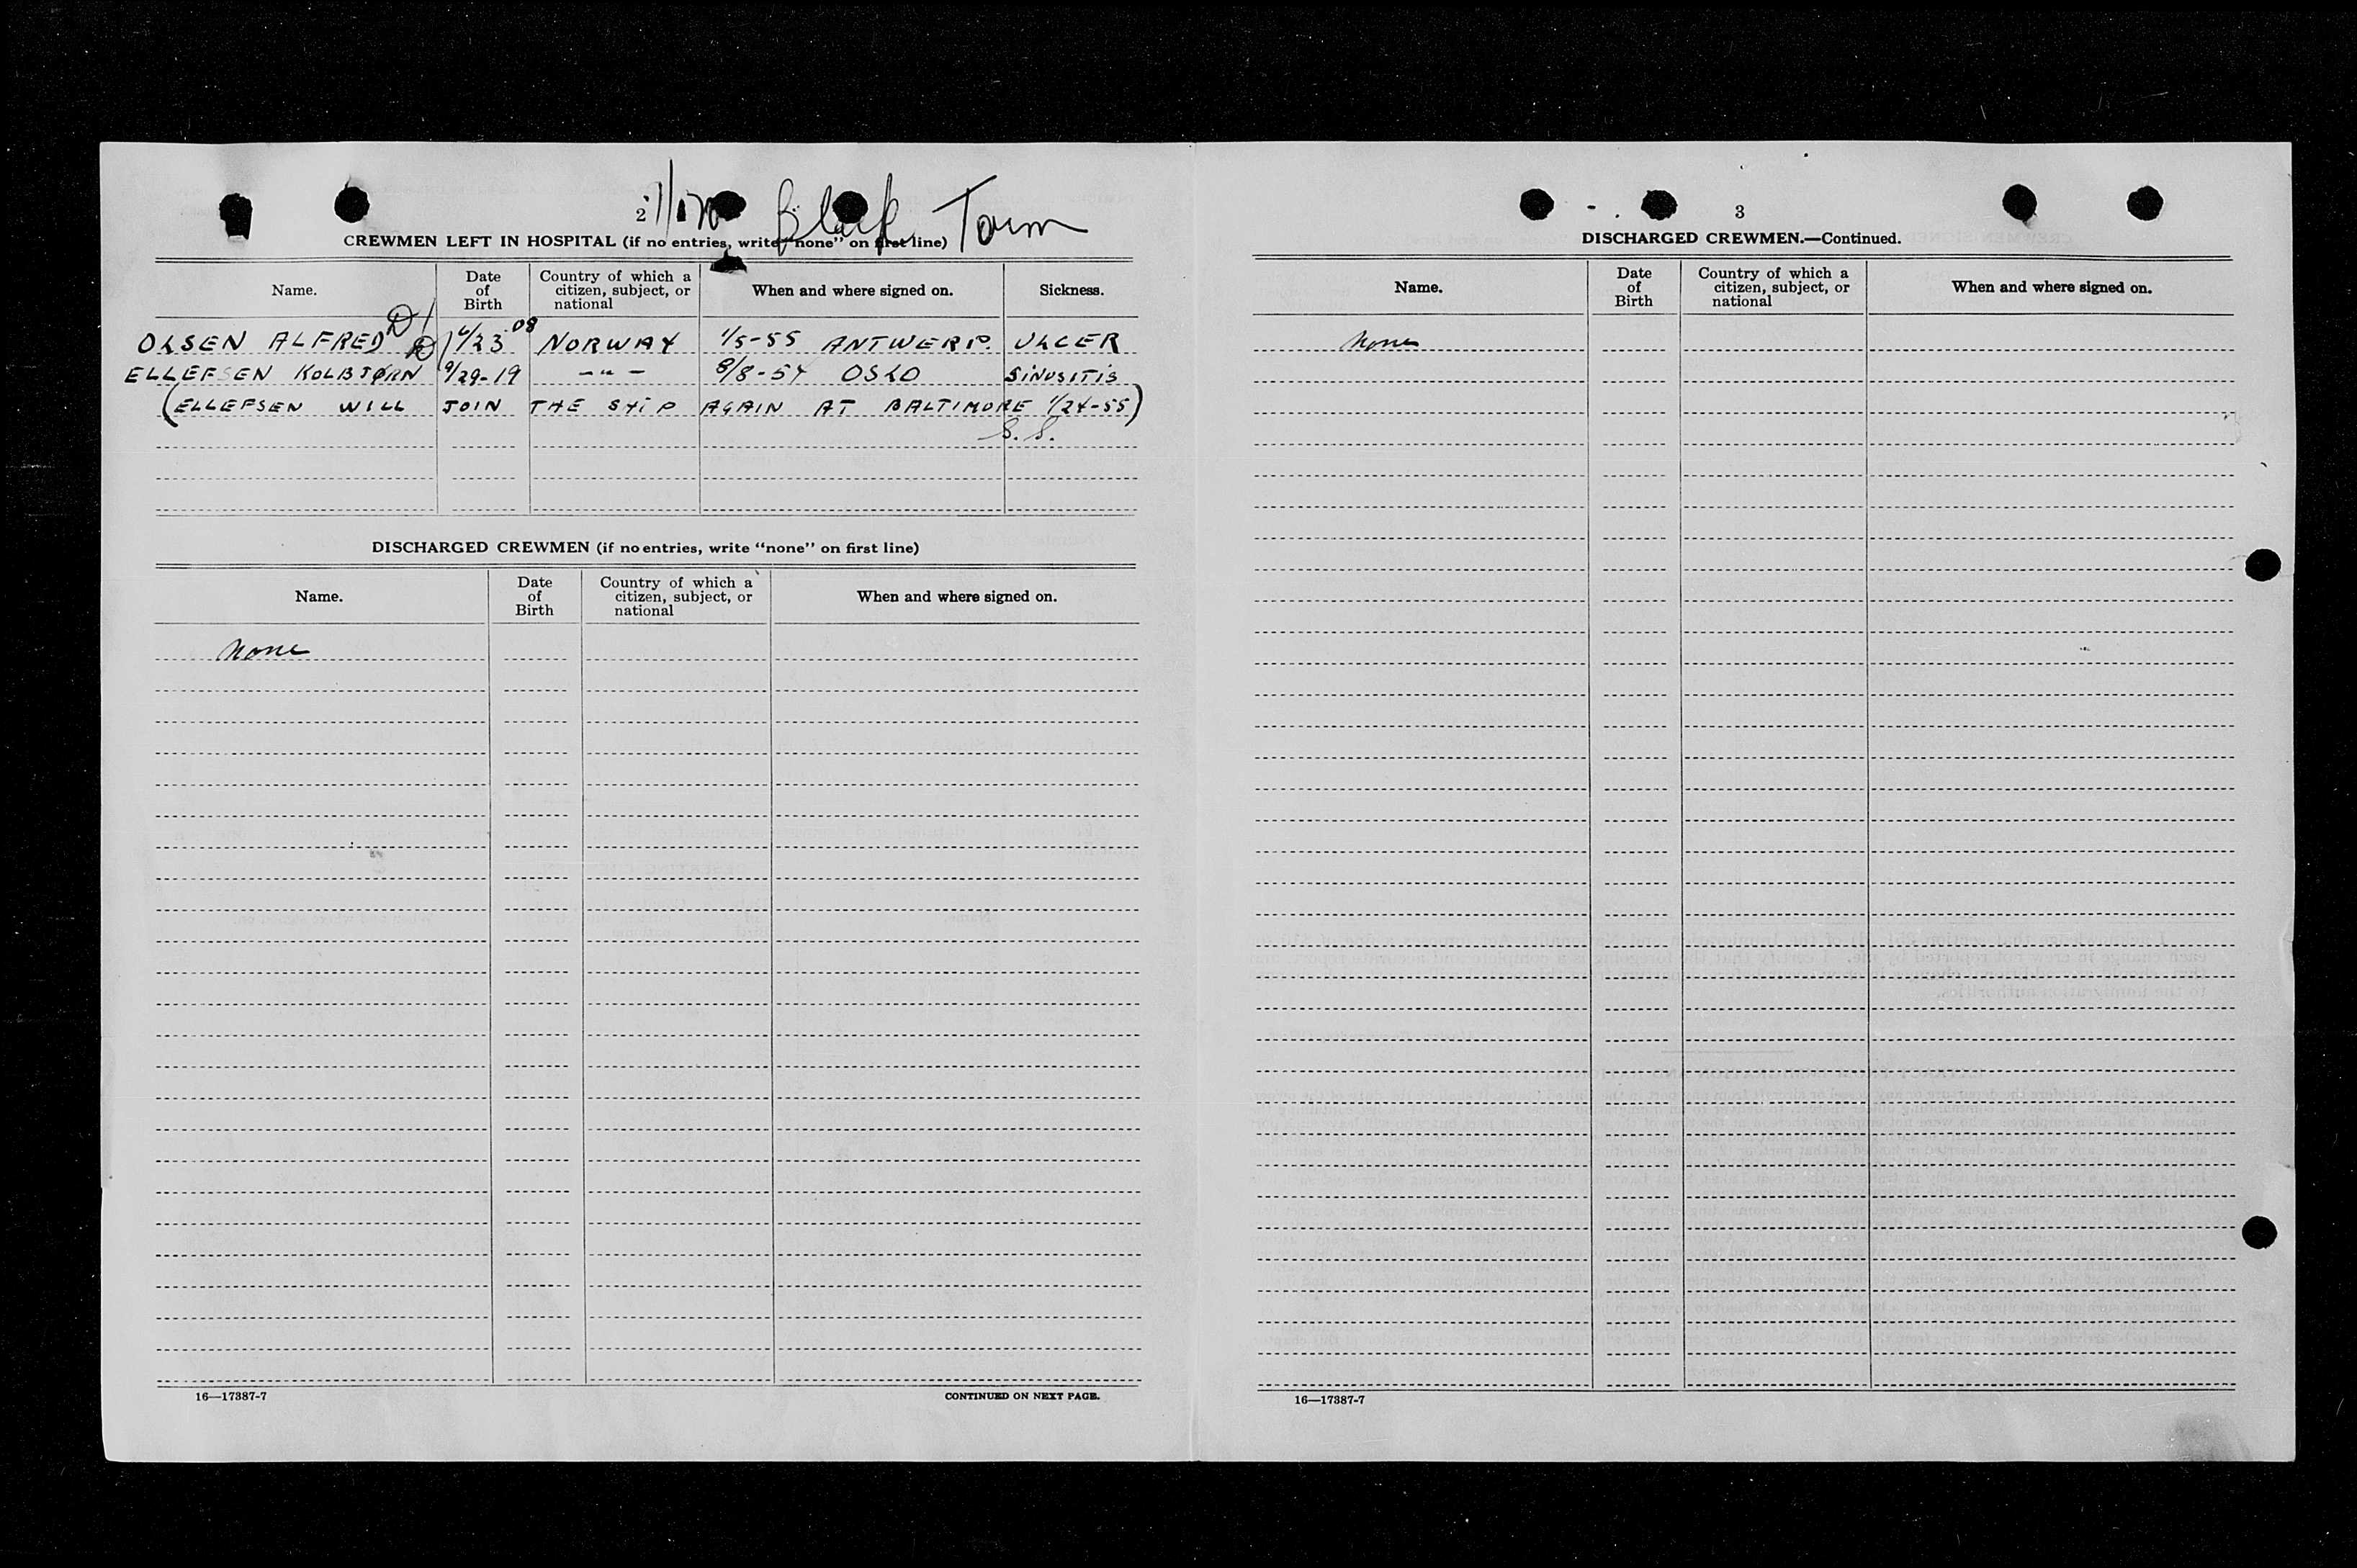 2
Black Tom
CREWMEN LEFT IN HOSPITAL (if no entries, write "none" on first line)
Name. Date of Birth Country of which a citizen, subject, or national When and where signed on. Sickness.
OLSEN ALFRED D/ 6/23 08 NORWAY 1/5-55 ANTWERP. ULCER
ELLEFSEN KOLBJØRN 9/29-19 -"- 8/8-54 OSLO SINUSITIS
(ELLEFSEN WILL JOIN THE SHIP AGAIN AT BALTIMORE 1/24-55)
S. S.
DISCHARGED CREWMEN (if no entries, write "none" on first line)
Name. Date of Birth Country of which a citizen, subject, or national When and where signed on.
none
16—17387-7 CONTINUED ON NEXT PAGE.
3
DISCHARGED CREWMEN.—Continued.
Name. Date of Birth Country of which a citizen, subject, or national When and where signed on.
none
16—17387-7